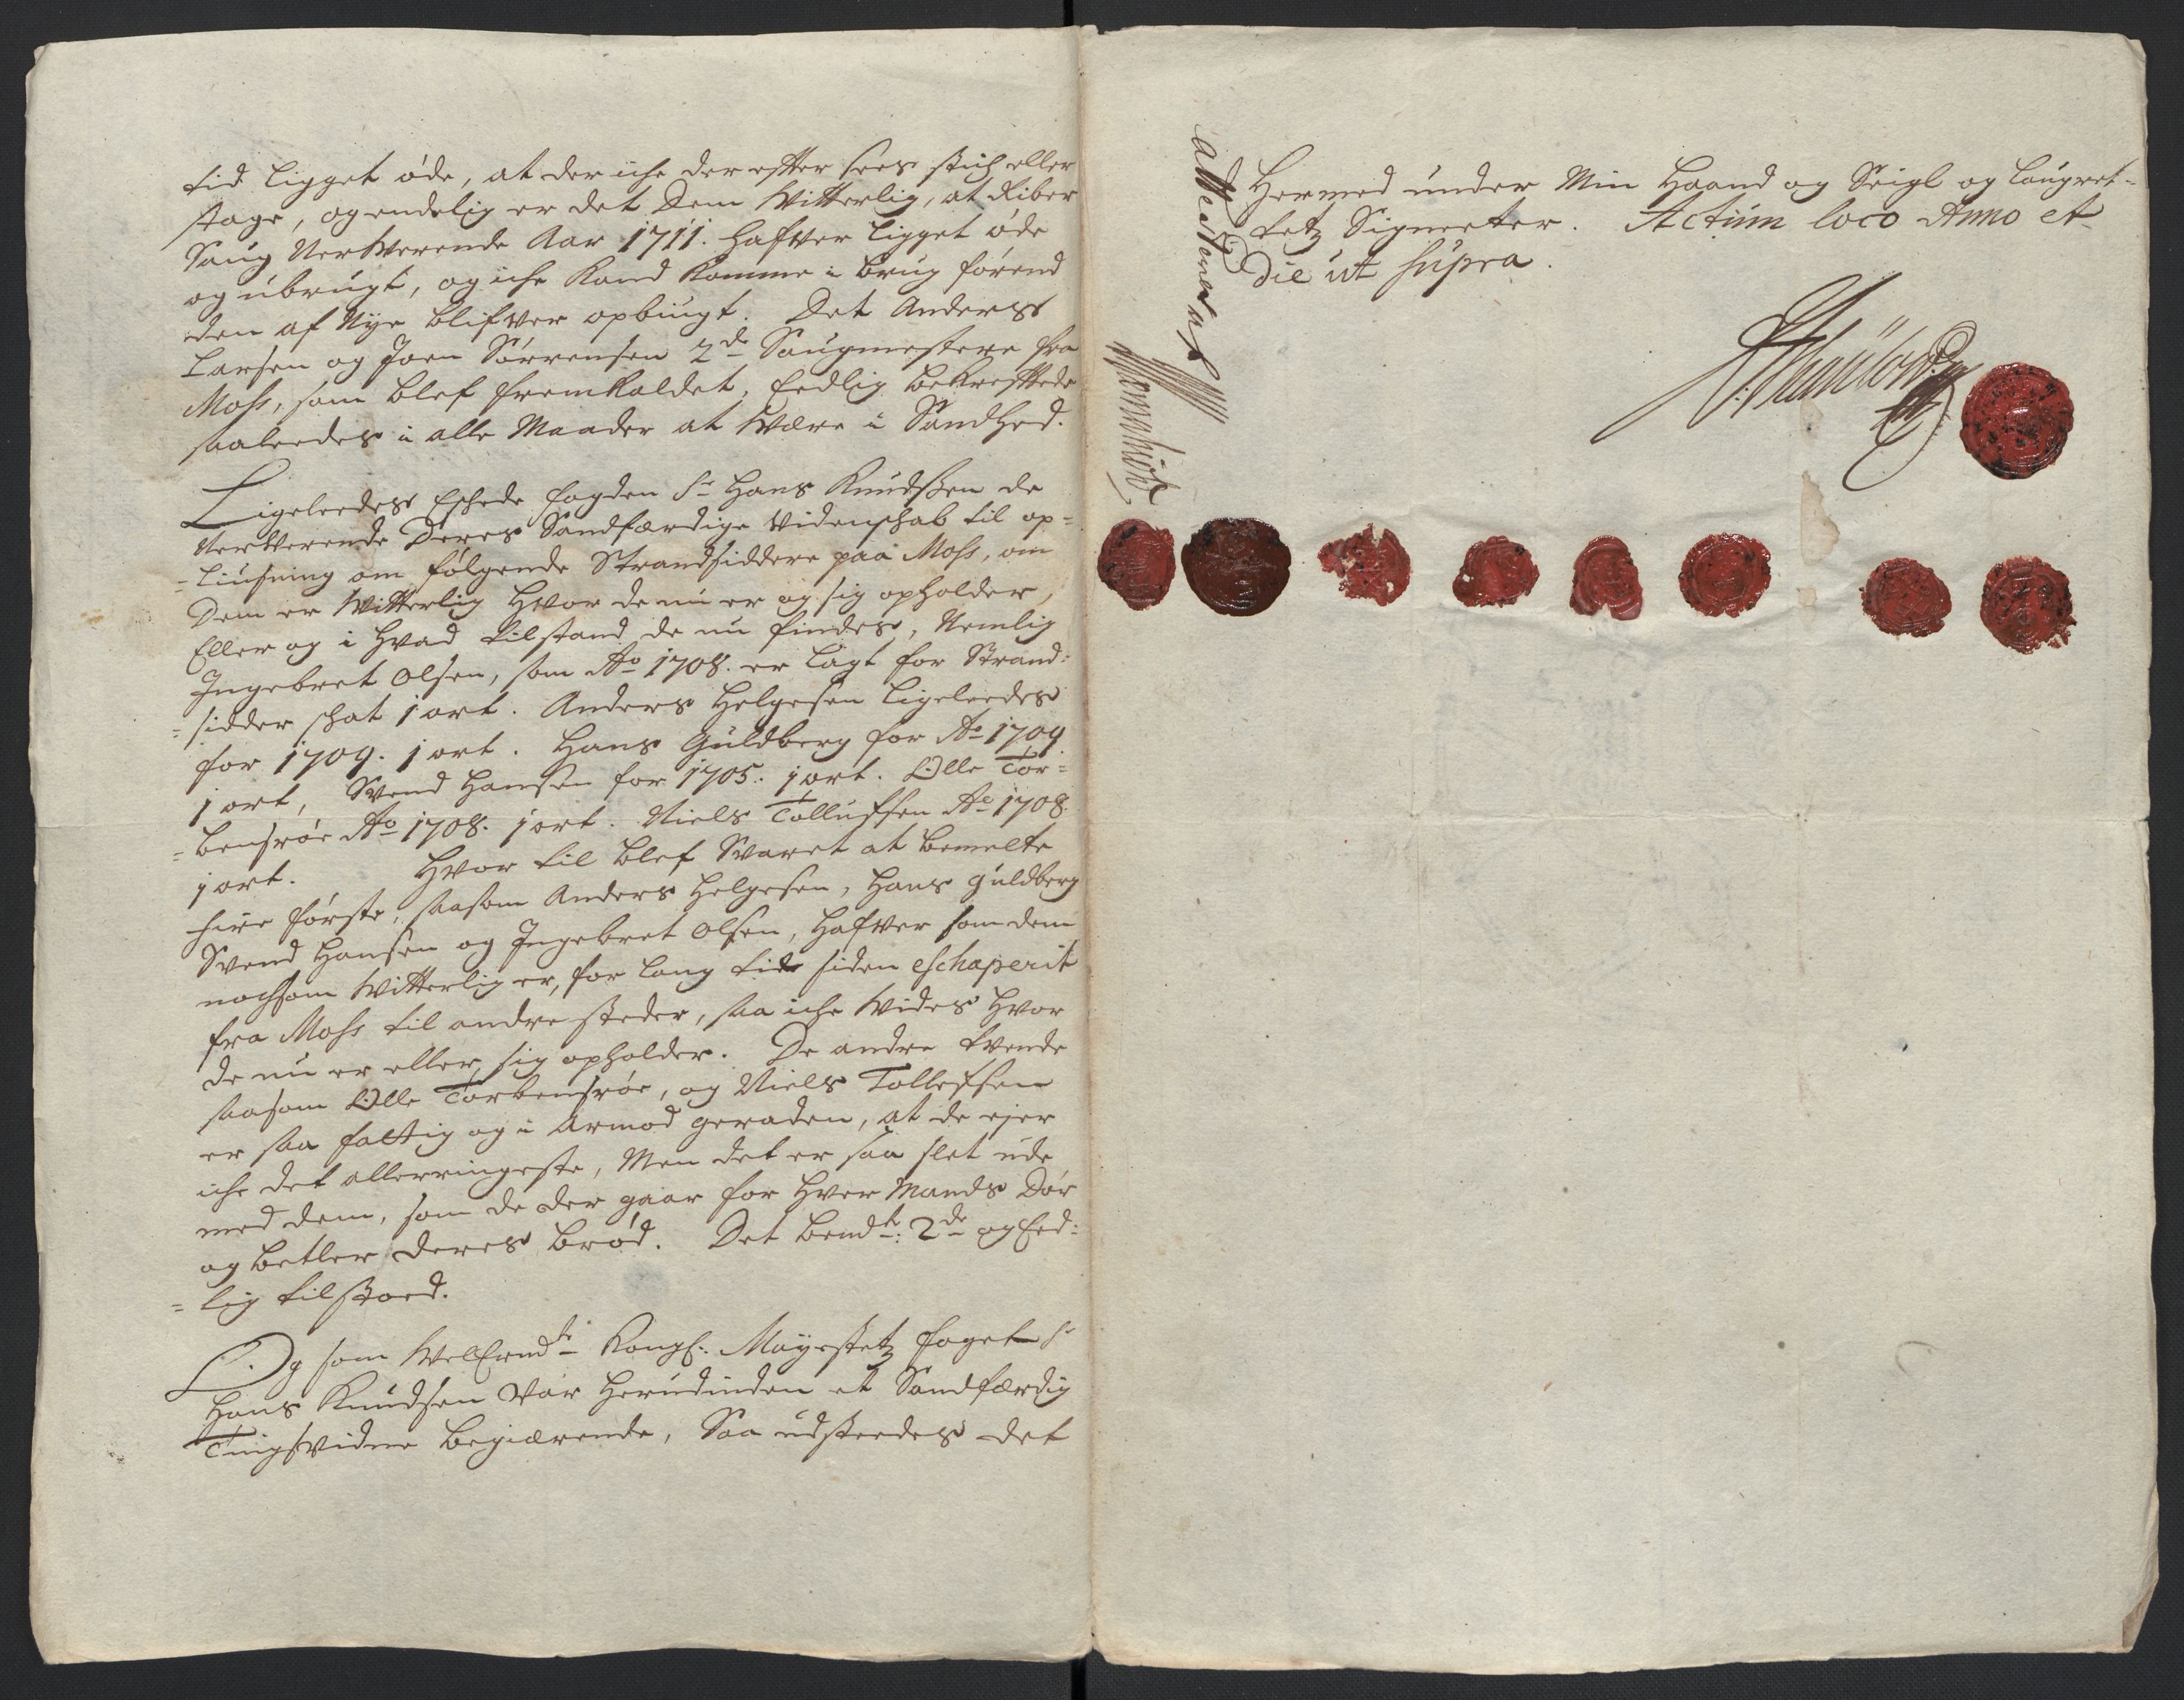 tid ligget øde, at der iche der efter sees stich eller
stage, og endelig er det Dem Witterlig, at Riber
Saug Nerwerende Aar 1711. hafver ligget øde
og ubrugt, og iche Kand Komme i brug førend
den af Nye blifver opbiugt. Det Anders
Larsen og Joen Sørrensen 2de Saugmestere fra
Moss, som blef fremkaldet, Eedlig bekreftede
saaleedes i alle Maader at Være i Sandhed.
Ligeleedes Eskede fogden Sr Hans Knudssen de
Nerverende Deres Sandfærdige Videnskab til op=
=liusning om følgende Strandsiddere paa Moss, om
Dem er Witterlig hvor de nu er og sig opholder,
Eller og i hvad tilstand de nu findes, Nemlig
Ingebret Olsen, som Ao 1708. er lagt for Strand=
=sidder schat 1 ort. Anders Helgesen ligeleedes
for 1709. 1 ort. Hans Guldberg for Ao 1709
1 ort, Svend Hansen for 1705. 1 ort. Olle Tor=
=bensrøe Ao 1708. 1 ort. Niels Tollussen Ao 1708.
1 ort. Hvor til blef Svaret at bemelte
fire første, saasom Anders Helgesen, Hans Guldberg
Svend Hansen og Ingebret Olsen, hafver som dem
nochsom Witterlig er, for lang tid siden eschaperit
fra Moss til andre steder, saa iche Vides hvor
de nu er eller sig opholder. De andre tvende
saasom Olle Torbensrøe, og Niels Tollefsen
er saa fattig og i Armod geraden, at de ejer
iche det allerringeste, Men det er saa slet ude
med dem, som de der gaar for hver Mands Dør
og betler deres brød. Det bemdte 2de og Eed=
=lig tilstoed.
Og som WelErnde Kongl. Mayestetz foget Sr
Hans Knudsen var herudinden et Sandfærdig
Tingsvidne begiærende, Saa udstædes det
Hermed under Min Haand og Seigl og laugret=
tetz Signeter. Actum loco Anno et
Die ut supra.
attesterer af